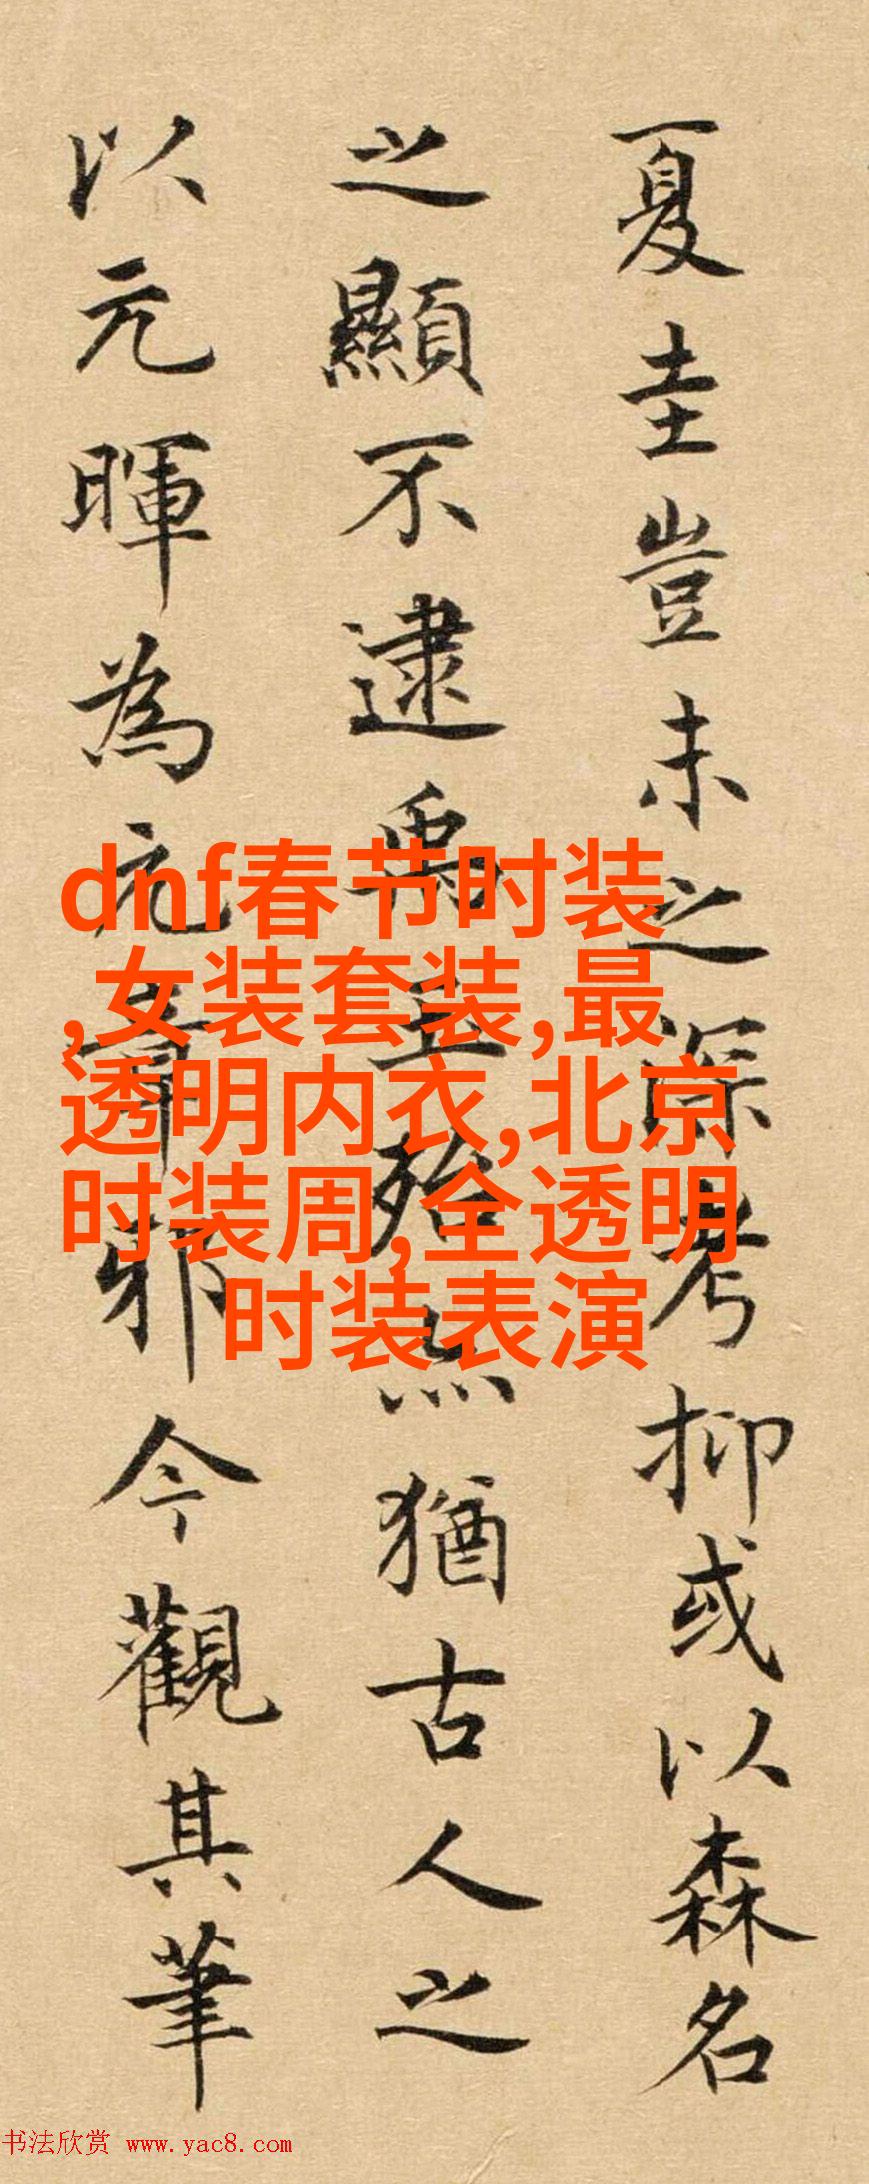 夏圭豈未之深考抑或以森名
之顯不逮禹玉殆亦猶古人之
以元暉為元章邪今觀其筆
dnf春节时装
,女装套装,最
透明内衣,北京
时装周,全透明
时装表演
书法欣赏 www.yac8.com